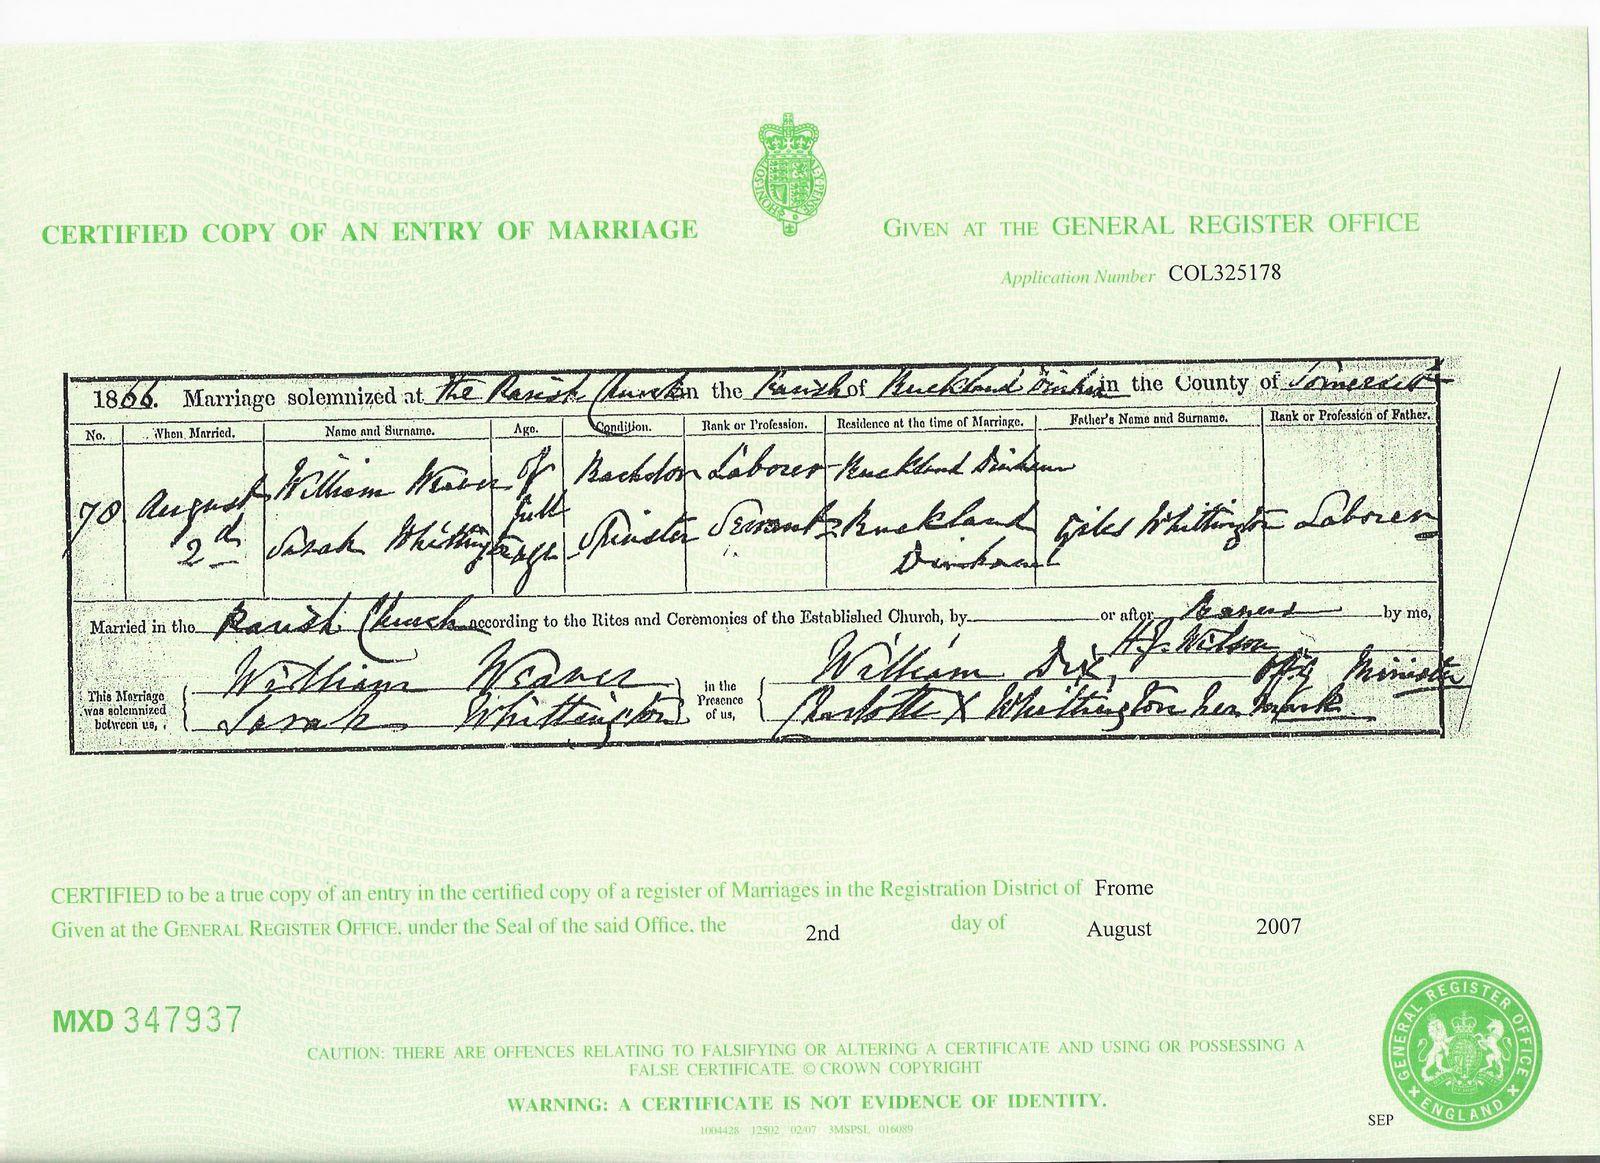 CERTIFIED COPY OF AN ENTRY OF MARRIAGE
GIVEN AT THE GENERAL REGISTER OFFICE
Application Number COL325178
1866. Marriage solemnized at the Parish Church in the Parish of Buckland Dinham in the County of Somerset
No. When Married. Name and Surname. Age. Condition. Rank or Profession. Residence at the time of Marriage. Father's Name and Surname. Rank or Profession of Father.
70 August 2d William Weaver of full age Bachelor Laborer Buckland Dinham
Sarah Whittington Spinster Servant Buckland Dinham Giles Whittington Laborer
Married in the Parish Church according to the Rites and Ceremonies of the Established Church, by or after Banns by me,
H.J. Wilson Offg Minister
This Marriage was solemnized between us, William Weaver Sarah Whittington
in the Presence of us, William Dix, Charlotte X Whittington her mark
CERTIFIED to be a true copy of an entry in the certified copy of a register of Marriages in the Registration District of Frome
Given at the GENERAL REGISTER OFFICE, under the Seal of the said Office, the 2nd day of August 2007
MXD 347937
CAUTION: THERE ARE OFFENCES RELATING TO FALSIFYING OR ALTERING A CERTIFICATE AND USING OR POSSESSING A
FALSE CERTIFICATE. © CROWN COPYRIGHT
WARNING: A CERTIFICATE IS NOT EVIDENCE OF IDENTITY.
1004428 12502 02/07 3MSPSL 016089
SEP
GENERAL REGISTER OFFICE
ENGLAND